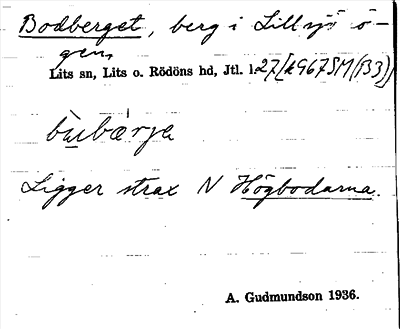 Bodberget, berg i Lillsjö ö-
gen,
Lits sn, Lits o. Rödöns hd, Jtl. 127/
Ligger strax N Högbodarna.
A. Gudmundson 1936.